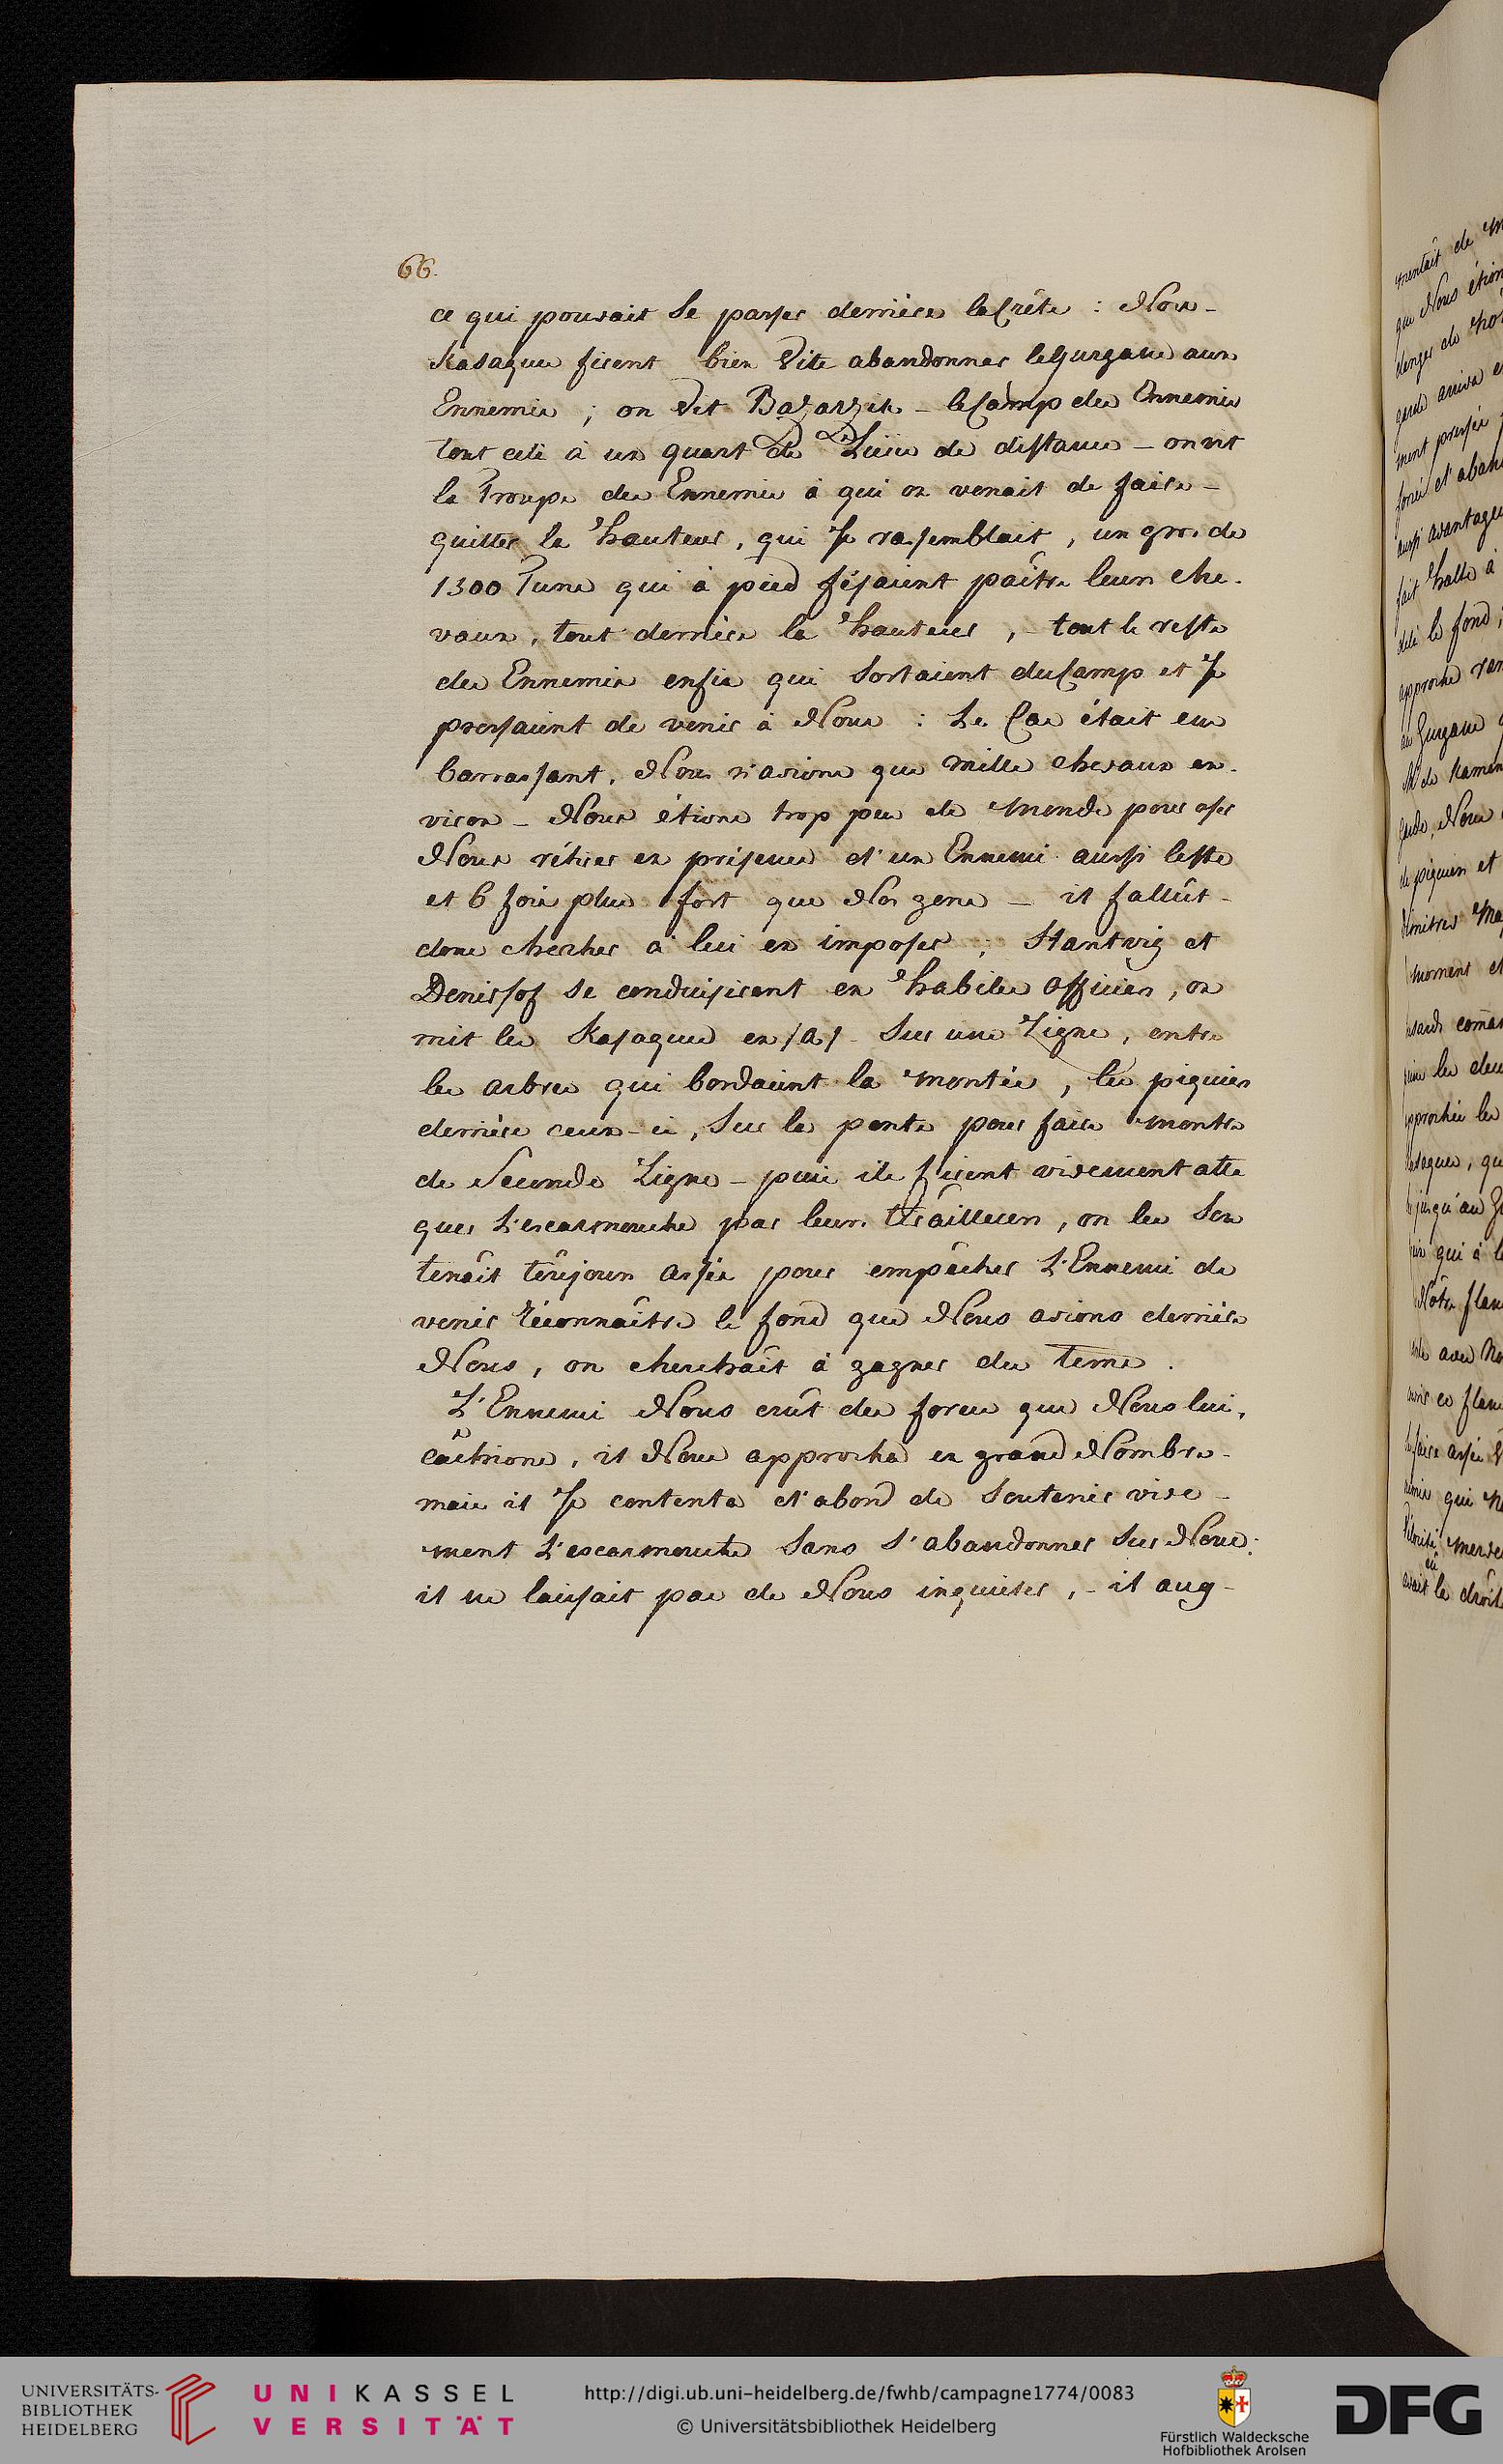 66.
ce qui pouvait Se passer derrière la Crête : Nos
Kasaques firent bien Vite abandonner le Gurgane aux
Ennemis ; on Vit Bazarzik - le Camp des Ennemis
tout celà à un quart de Lieüe de distance - on vit
la Troupe des Ennemis à qui on venait de faire -
quitter la hauteur, qui Se rassemblait, un gros de
1300 Turcs qui à pied fesaient paître leurs che-
vaux, tout derrière la hauteur, - tout le reste
des Ennemis enfin qui Sortaient du Camp et Se
pressaient de venir à Nous : Le Cas était em
barrassant, Nous n'avions que mille chevaux en-
viron - Nous étions trop peu de Monde pour oser
Nous rétirer en présence d'un Ennemi aussi leste
et 6 fois plus fort que Nos gens - il fallût -
donc chercher à lui en imposer ; Hantvig et
Denissof Se conduisirent en habiles Officiers, on
mit les Kasaques en /a/ - Sur une Ligne, entre
les arbres qui bordaient la montée, les piquiers
derrière ceux-ci, Sur la pente pour faire montre
de Seconde Ligne - puis ils firent vivement atta
quer L'escarmouche par leurs tirailleurs, on les Sou
tenait toujours assés pour empâcher L'Ennemi de
venir réconnaître le fond que Nous avions derrière
Nous, on cherchait à gagner du tems.
L'Ennemi Nous crût des forces que Nous lui,
câchions, il Nous approcha en grand Nombre -
mais il Se contenta d'abord de Soutenir vive -
ment L'escarmouche Sans S'abandonner Sur Nous:
il ne laissait pas de Nous inquieter, - il aug -
mentait de
que Nous étion
danger de
garde arriva
ment pressée
forcée et aban
aussi avantage
fait halte à
delà le fond ;
approche
au Gurgane
Mr de Kamen
garde, Nous
de piquiers et
moment et
approchée les
Kasaques, qu
jusqu'au
qui à
Nôtre flan
avec
flan
faire assés
qui
où
avait la droit
UNIVERSITÄTS-
BIBLIOTHEK
HEIDELBERG
UNIKASSEL
VERSITÄT
http://digi.ub.uni-heidelberg.de/fwhb/campagne1774/0083
© Universitätsbibliothek Heidelberg
Fürstlich Waldecksche
Hofbibliothek Arolsen
DFG